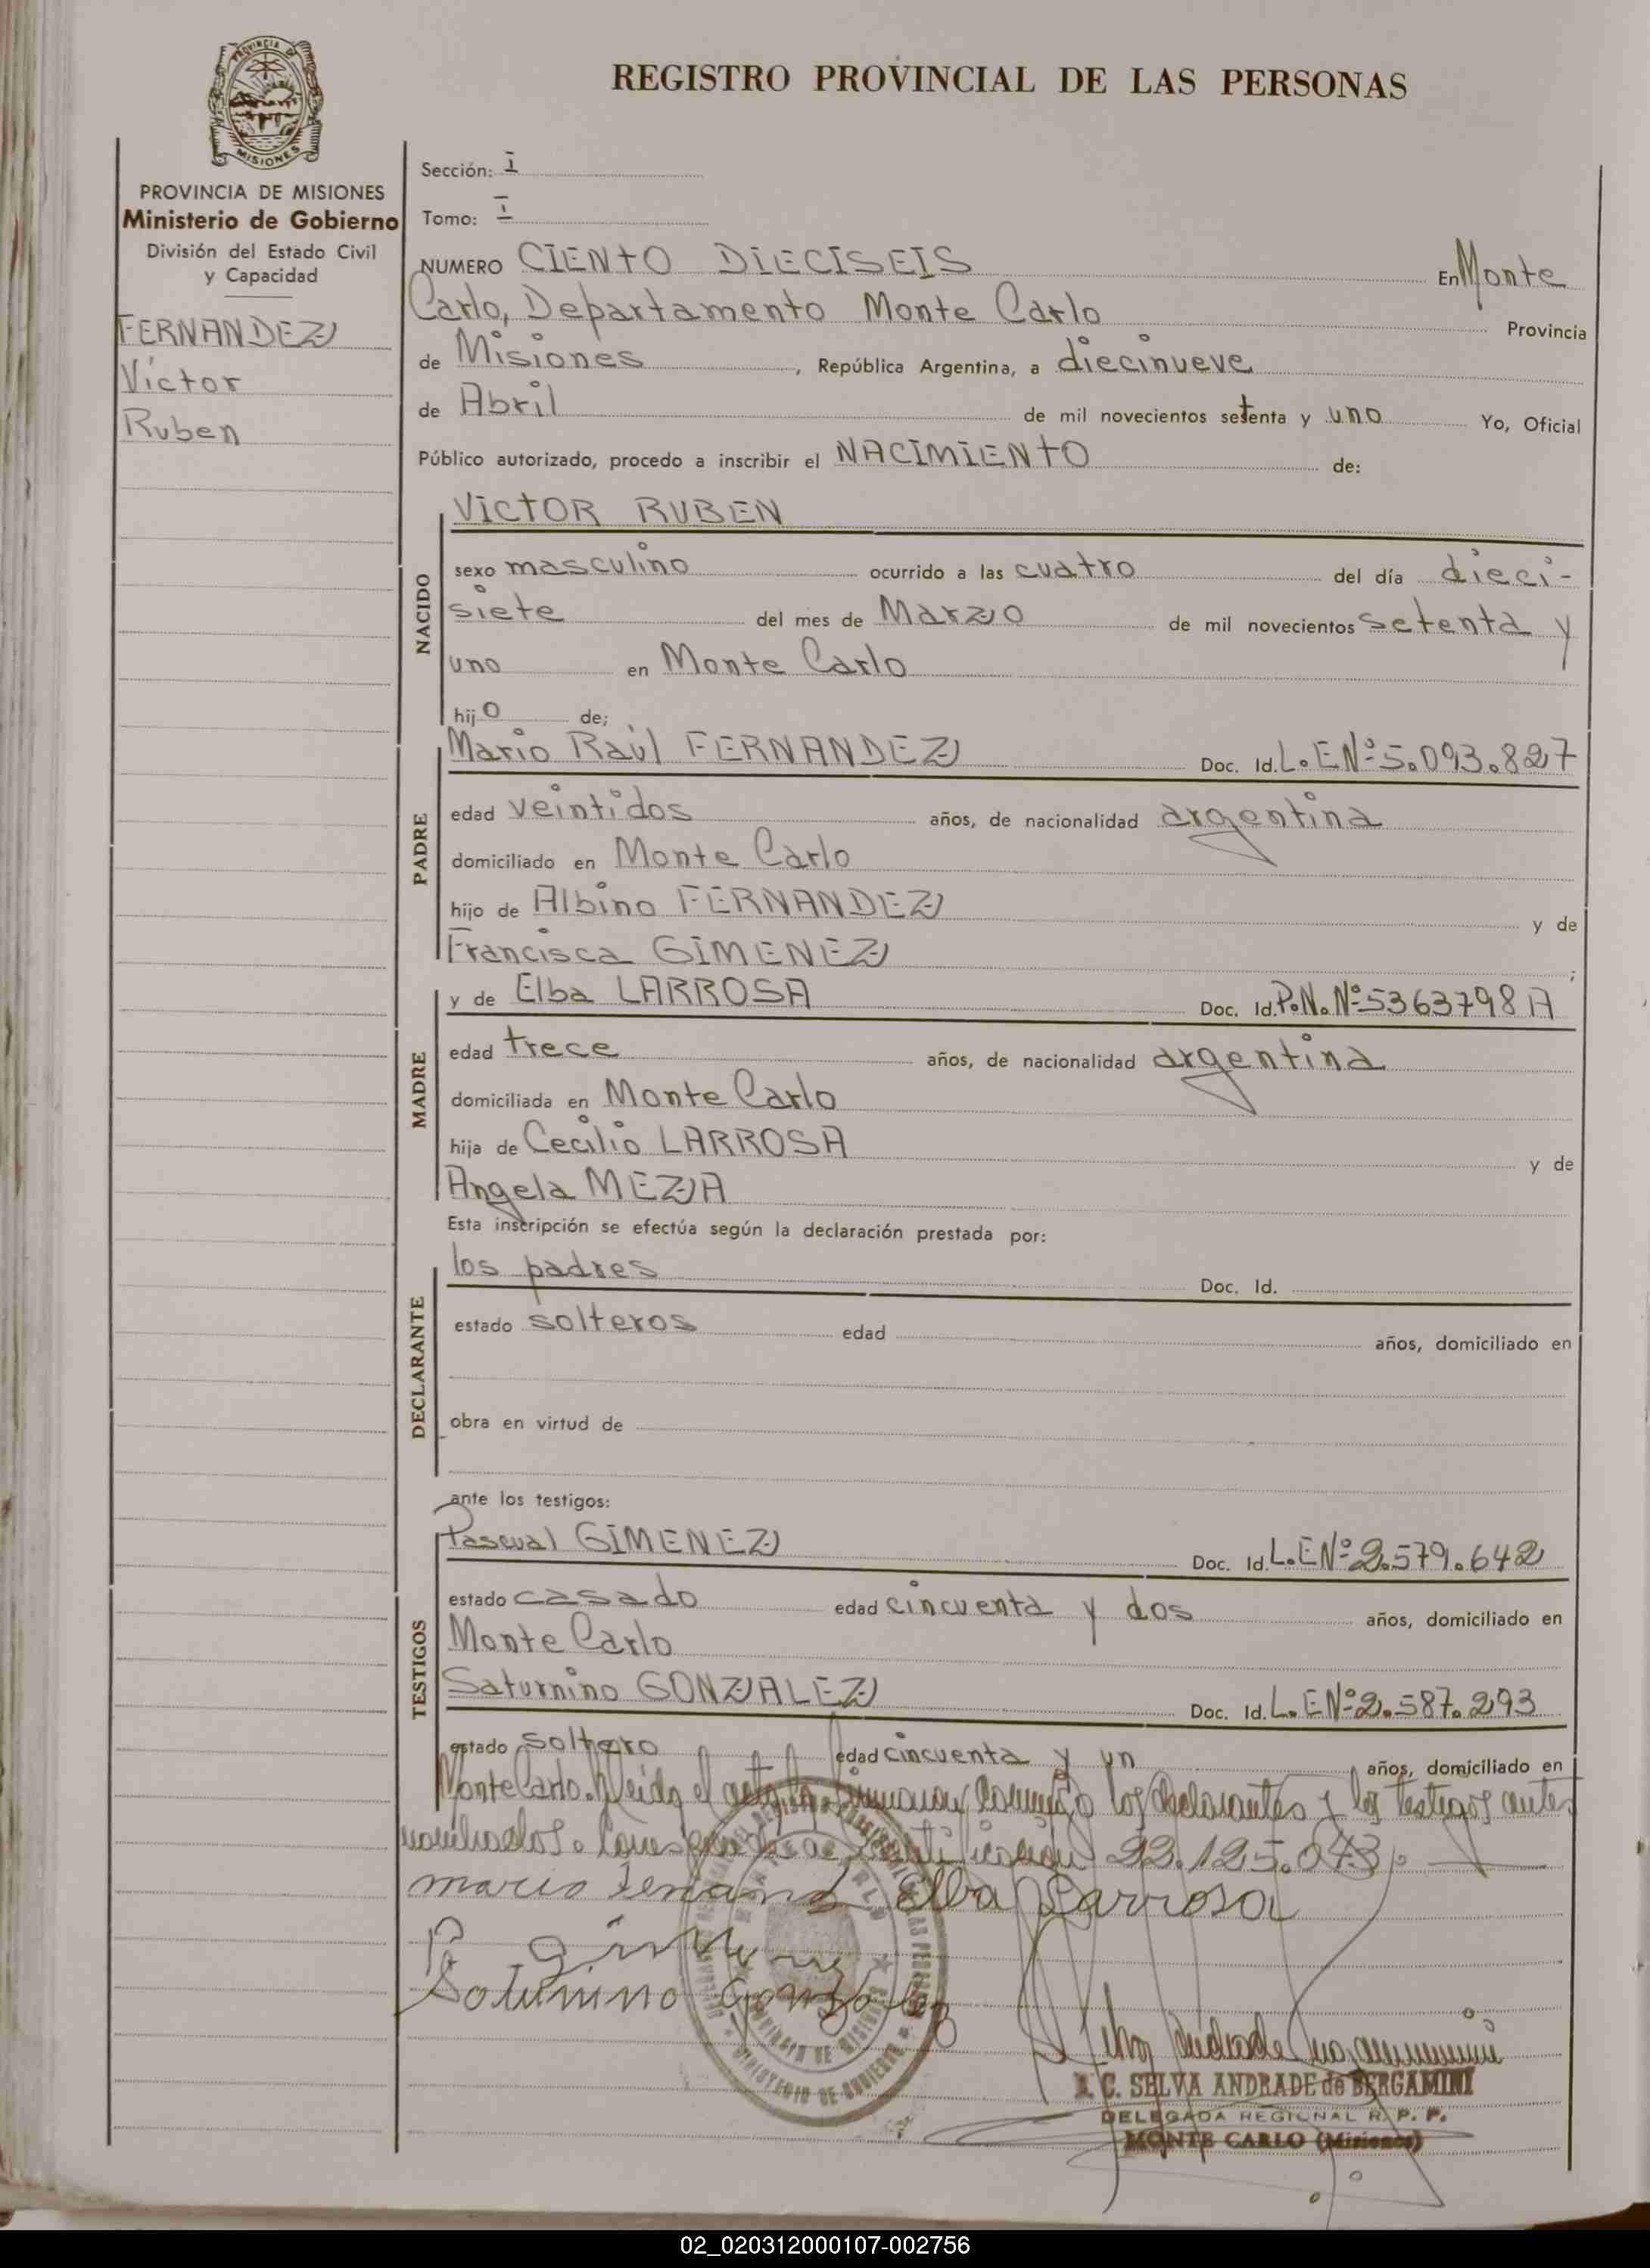 PROVINCIA DE
MISIONES
REGISTRO PROVINCIAL DE LAS PERSONAS
PROVINCIA DE MISIONES
Ministerio de Gobierno
División del Estado Civil
y Capacidad
FERNANDEZ
Víctor
Ruben
Sección: I
Tomo: I
NUMERO CIENTO DIECISEIS En Monte
Carlo, Departamento Monte Carlo Provincia
de Misiones, República Argentina, a diecinueve
de Abril de mil novecientos setenta y uno Yo, Oficial
Público autorizado, procedo a inscribir el NACIMIENTO de:
NACIDO
VICTOR RUBEN
sexo masculino ocurrido a las cuatro del día dieci-
siete del mes de Marzo de mil novecientos setenta y
uno en Monte Carlo
hijo de;
PADRE
Mario Raúl FERNANDEZ Doc. Id. L.E Nº 5.093.827
edad veintidos años, de nacionalidad argentina
domiciliado en Monte Carlo
hijo de Albino FERNANDEZ y de
Francisca GIMENEZ ;
MADRE
y de Elba LARROSA Doc. Id. P.N. Nº 5363798 A
edad trece años, de nacionalidad argentina
domiciliada en Monte Carlo
hija de Cecilio LARROSA y de
Angela MEZA
Esta inscripción se efectúa según la declaración prestada por:
DECLARANTE
los padres Doc. Id.
estado solteros edad años, domiciliado en
obra en virtud de
ante los testigos:
TESTIGOS
Pascual GIMENEZ Doc. Id. L.E Nº 2.579.642
estado casado edad cincuenta y dos años, domiciliado en
Monte Carlo
Saturnino GONZALEZ Doc. Id. L.E Nº 2.587.293
estado soltero edad cincuenta y un años, domiciliado en
Monte Carlo. Leida el acta la firman conmigo los declarantes y los testigos antes
22.125.043
mario Fernand Elba Larrosa
P Gimenez
Saturnino Gonzalez
PROVINCIA DE MISIONES
MINISTERIO DE GOBIERNO
I. C. SELVA ANDRADE de BERGAMINI
DELEGADA REGIONAL R. P. P.
MONTE CARLO (Misiones)
02_020312000107-002756